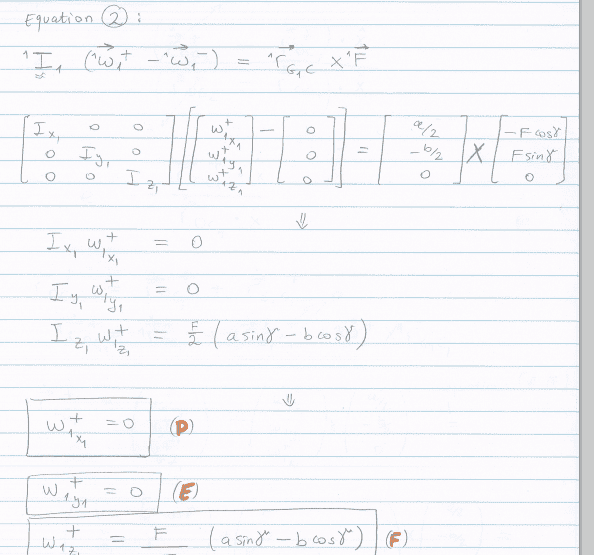 Equation ② :
¹I₁ (¹ω₁⁺ − ¹ω₁⁻) = ¹r_G₁C × ¹F
[I_x₁ 0 0; 0 I_y₁ 0; 0 0 I_z₁] [[ω₁x₁⁺; ω₁y₁⁺; ω₁z₁⁺] − [0; 0; 0]] = [a/2; -b/2; 0] × [-F cosγ; F sinγ; 0]
⇓
I_x₁ ω₁x₁⁺ = 0
I_y₁ ω₁y₁⁺ = 0
I_z₁ ω₁z₁⁺ = F/2 (a sinγ − b cosγ)
⇓
ω₁x₁⁺ = 0 (D)
ω₁y₁⁺ = 0 (E)
ω₁z₁⁺ = F (a sinγ − b cosγ) (F)